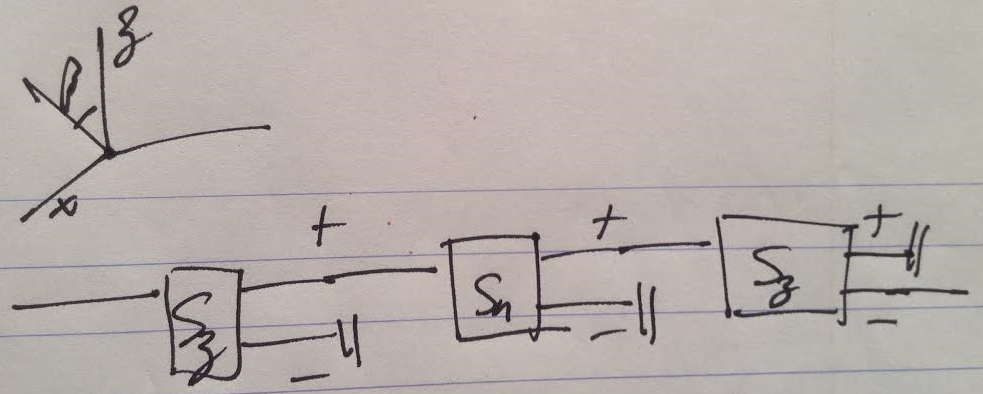 z
β
x
+ + +
S_z S_n S_z
− − −